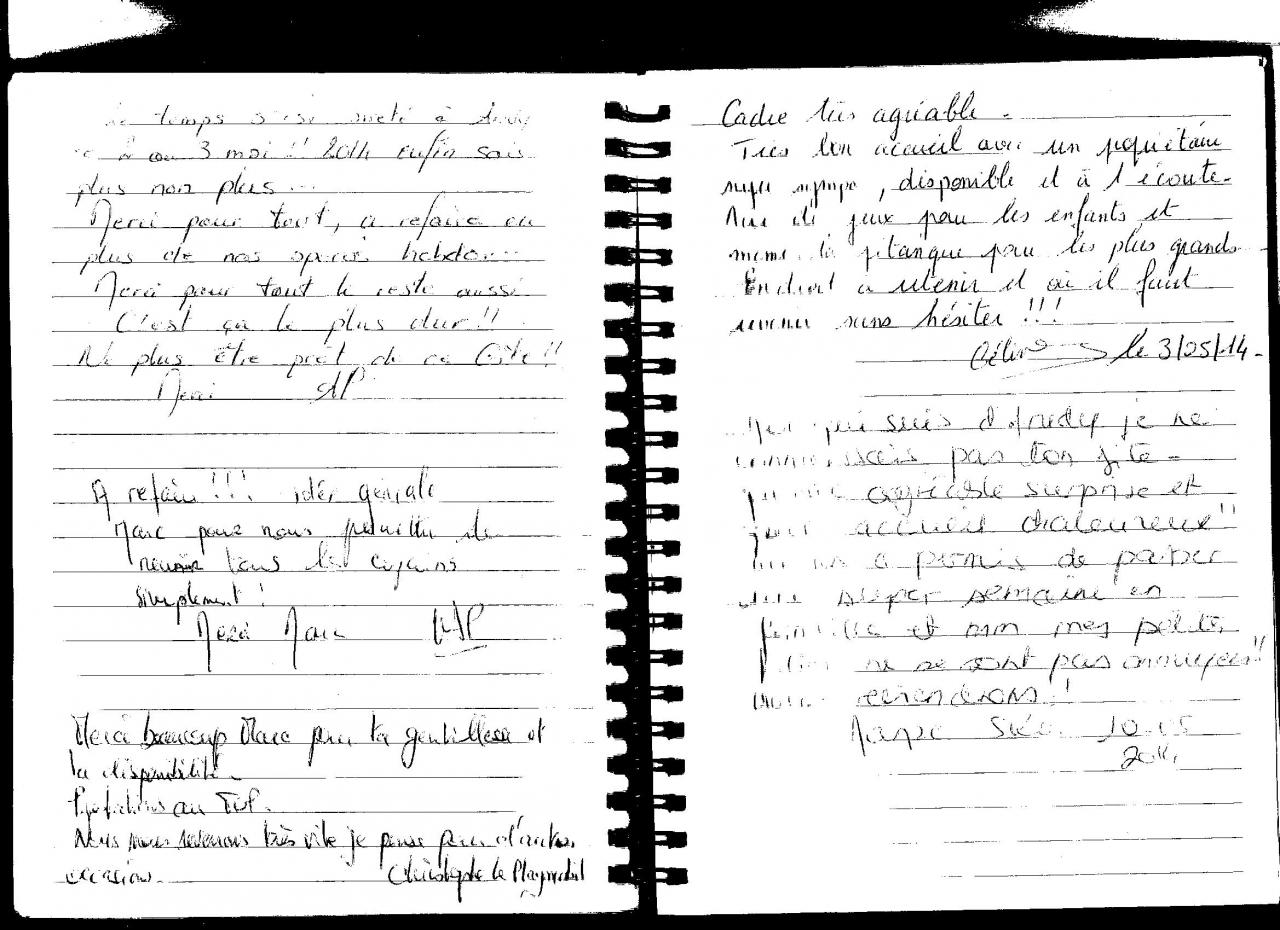 temps s'est arrêté à
3 mai !! 2014 enfin sais
plus non plus...
Merci pour tout, a refaire en
plus de nos hebdo...
Merci pour tout le reste aussi
C'est ça le plus dur!!
Ne plus être prêt de ce Côté!!
Merci AP
A refaire !!! idée géniale
Marc pour nous permettre de
tous les cousins
simplement !
Merci Marc
Merci beaucoup Marc pour ta gentillesse et
ta disponibilité.
au TOP.
Nous nous reverrons très vite je pense pour d'autres
occasions. Christophe le Playmobil
Cadre très agréable.
Très bon accueil avec un propriétaire
super sympa, disponible et à l'écoute.
de jeux pour les enfants et
même la pétanque pour les plus grands
Endroit a retenir et où il faut
revenir sans hésiter !!!
Céline le 3/05/14.
qui suis d'Andy je ne
connaissais pas ton gîte.
agréable surprise et
accueil chaleureux!!
a permis de passer
une super semaine en
famille et mes petits
ne se sont pas ennuyés!!
reviendrons!!
10.05
2014